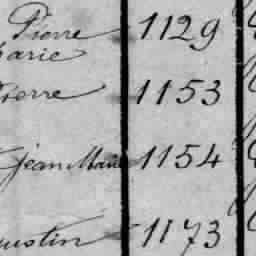 Pierre 1129
Marie
Pierre 1153
Jean Marie 1154
Augustin 1173